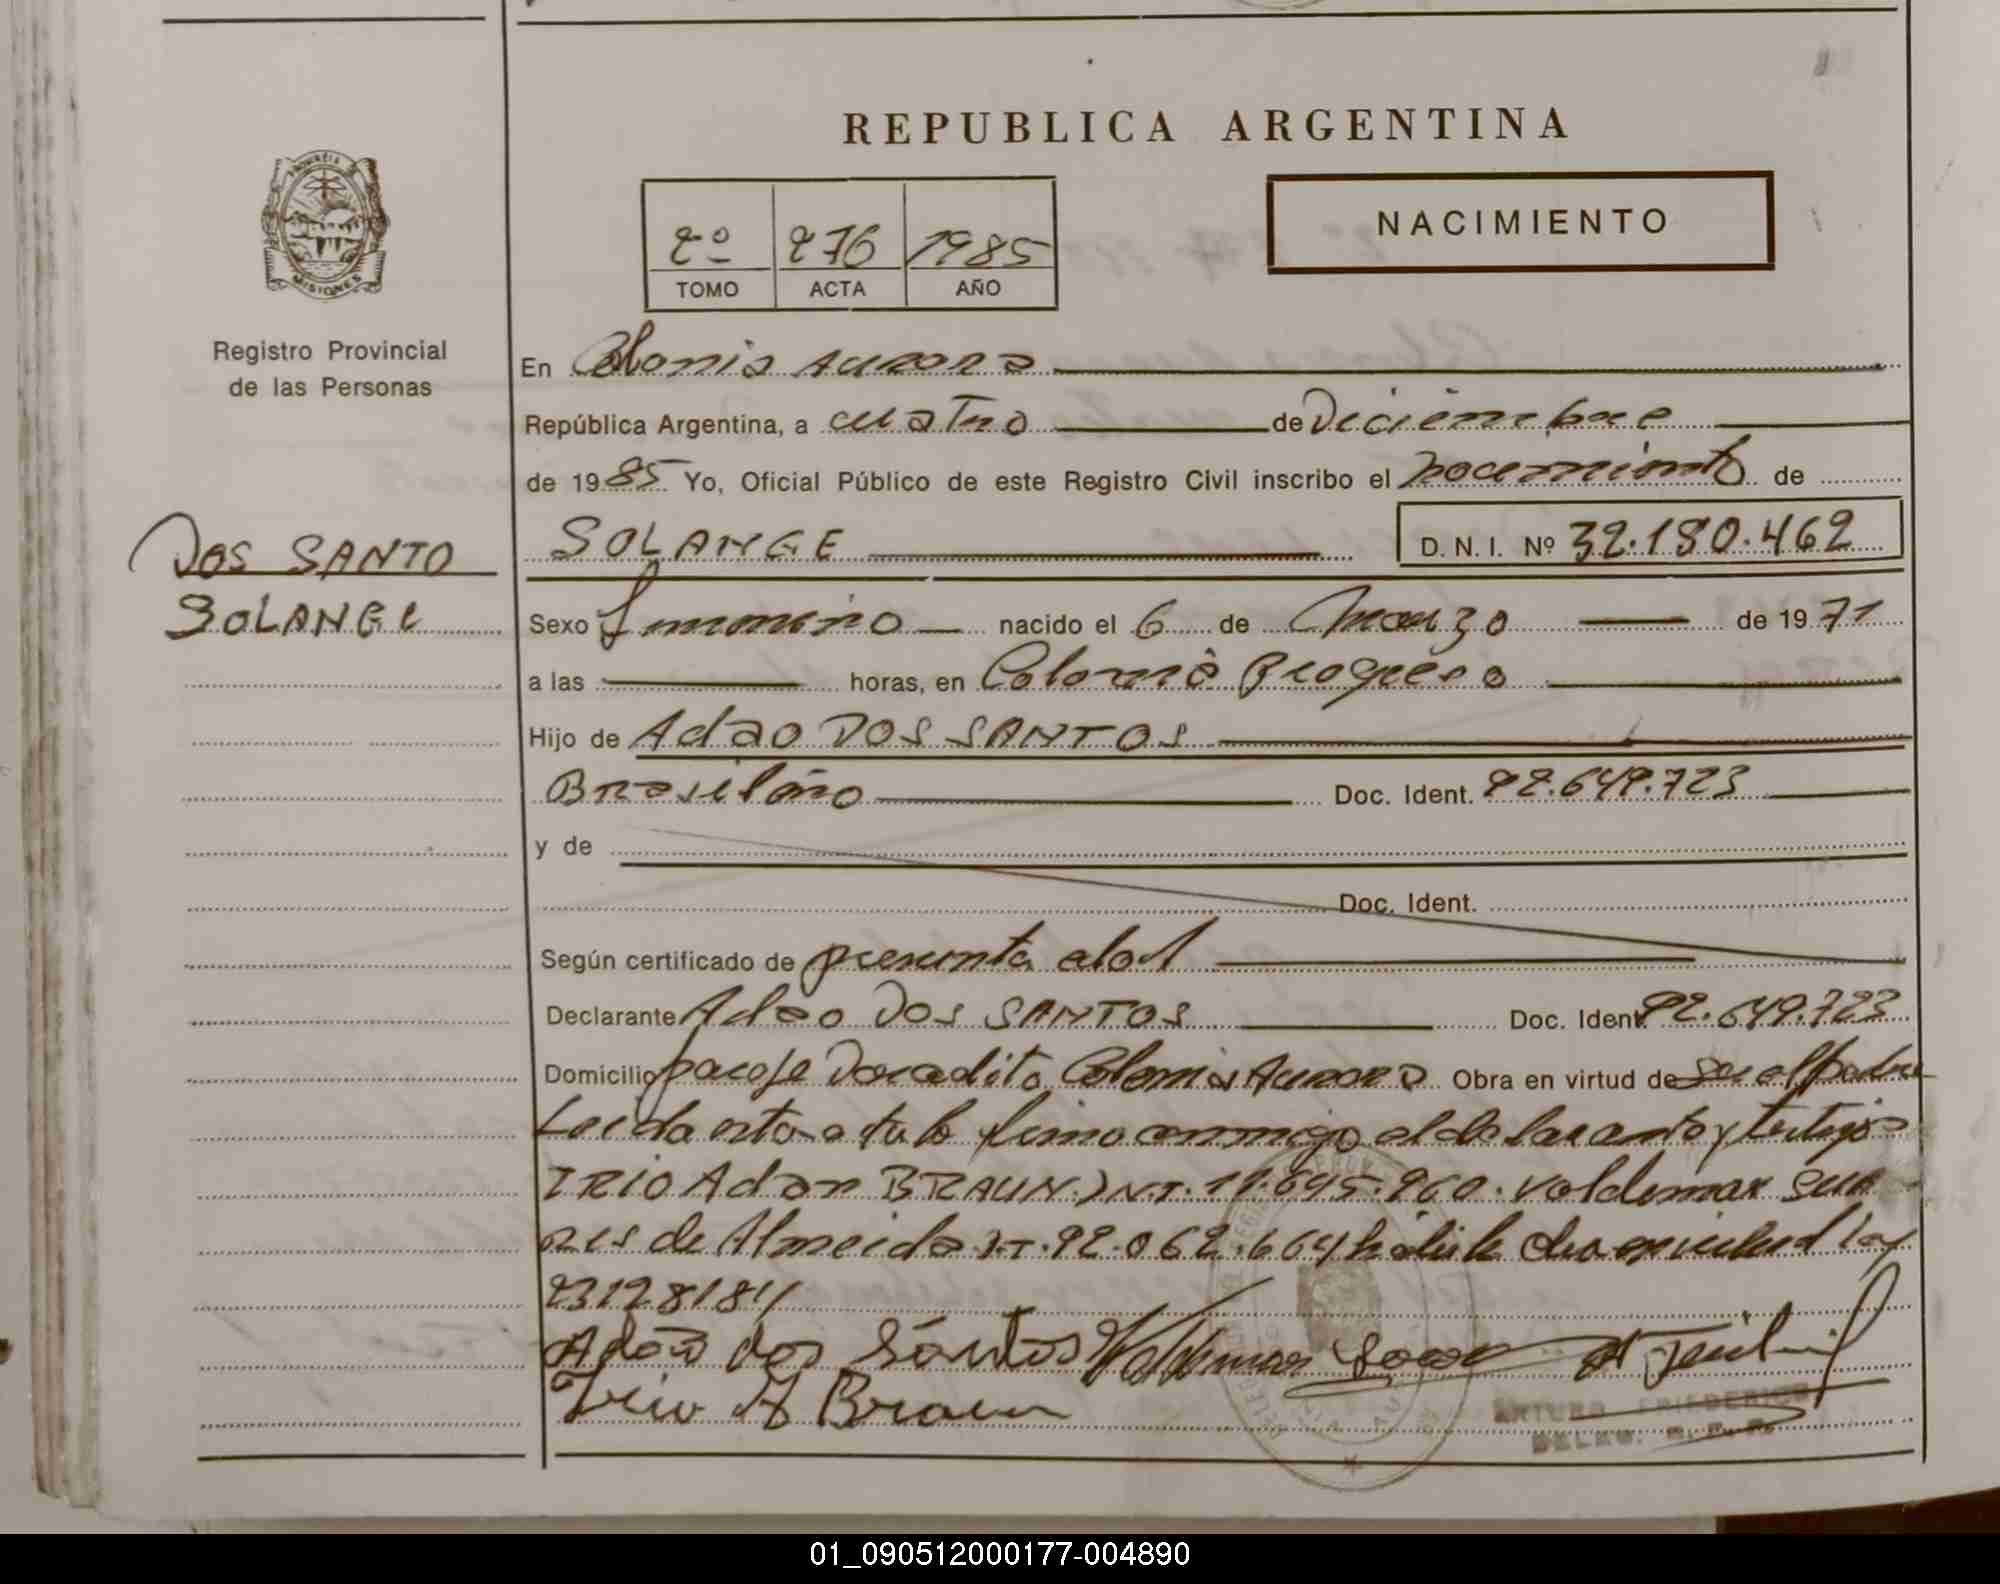 REPUBLICA ARGENTINA
NACIMIENTO
2º 276 1985
TOMO ACTA AÑO
PROVINCIA
MISIONES
Registro Provincial
de las Personas
DOS SANTO
SOLANGE
En Colonia Aurora
República Argentina, a cuatro de Diciembre
de 1985 Yo, Oficial Público de este Registro Civil inscribo el nacimiento de
SOLANGE D. N. I. Nº 32.180.462
Sexo femenino nacido el 6 de Marzo de 1971
a las horas, en Colonia Progreso
Hijo de Adao DOS SANTOS
Brasileño Doc. Ident. 92.649.723
y de
Doc. Ident.
Según certificado de presunta edad
Declarante Adao DOS SANTOS Doc. Ident. 92.649.723
Domicilio paraje Doradito Colonia Aurora Obra en virtud de ser el padre
Leida esta acta la firma conmigo el declarante y testigos
IRIO Adan BRAUN DNI. Valdemar
de Almeida 92.062.664 ley
23128/84
Adão dos Santos Valdemar
Irio A Braun
ARTURO FRIEDERICH
01_090512000177-004890